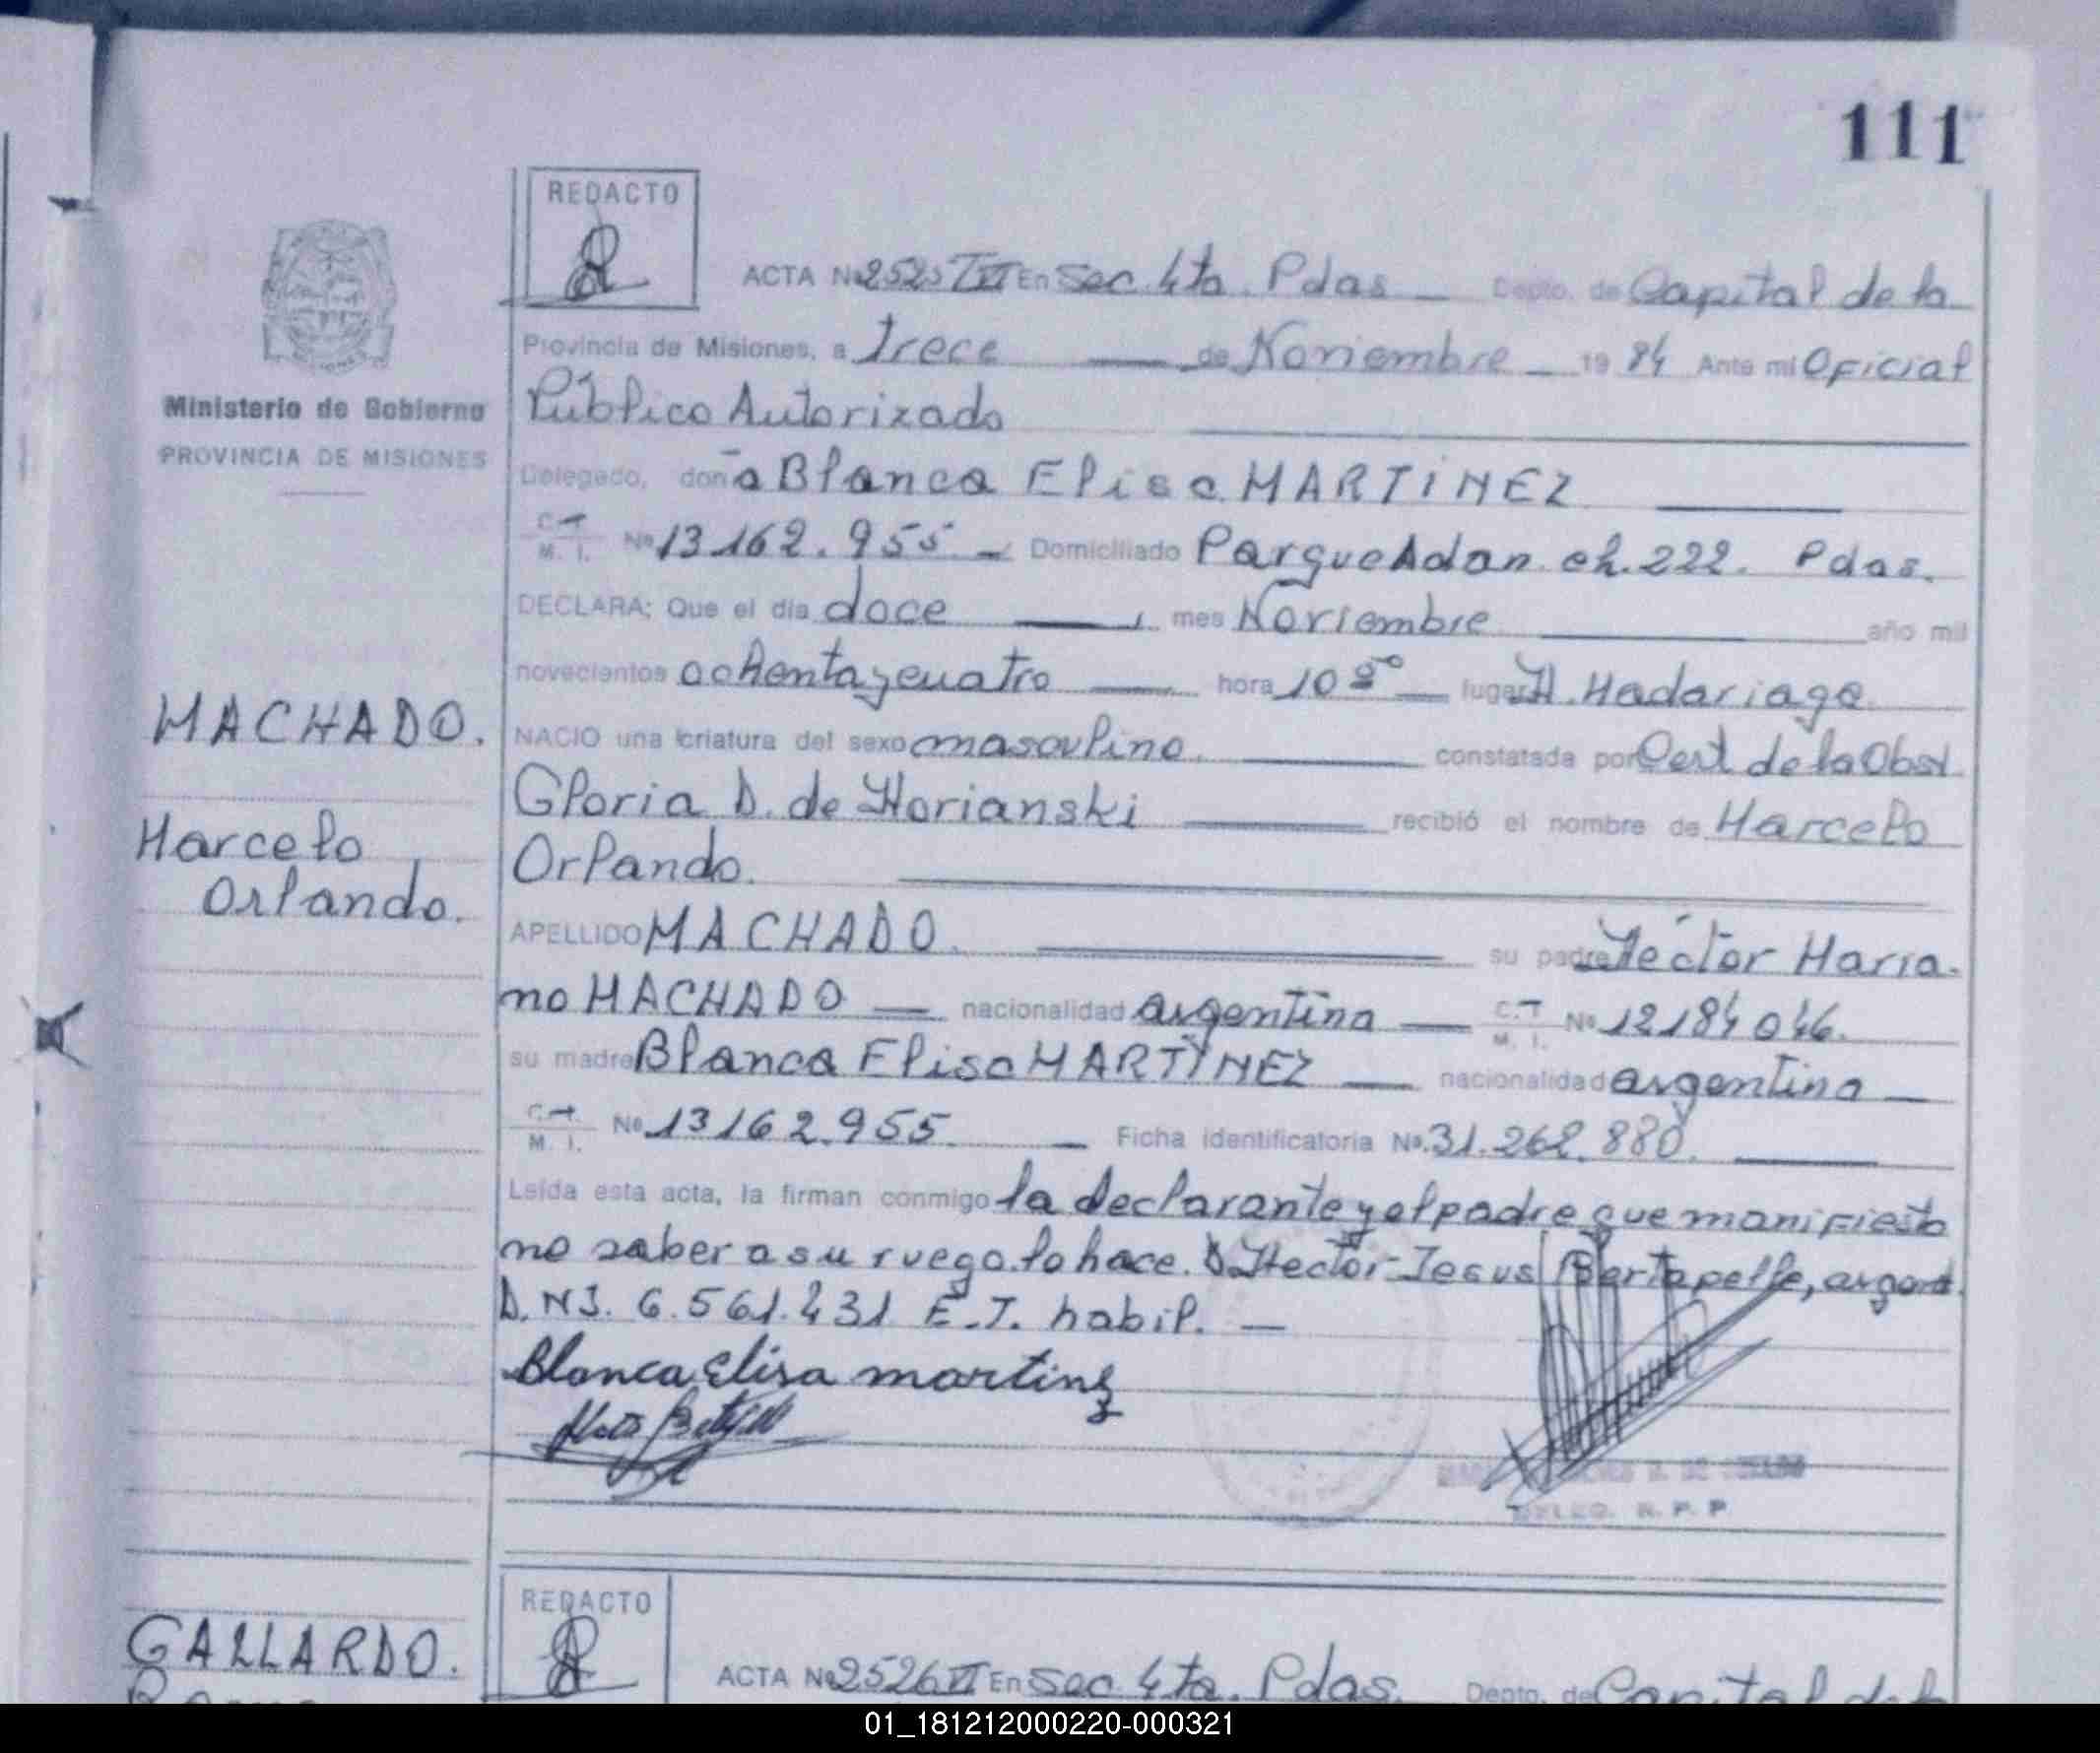 111
REDACTO
ACTA Nº 2525 T VI En Sec. 4ta. Pdas — Depto. de Capital de la
Provincia de Misiones, a Trece — de Noviembre — 19 84 Ante mi Oficial
Público Autorizado
Ministerio de Gobierno
PROVINCIA DE MISIONES
Delegado, doña Blanca Elisa MARTINEZ
C.I. M. I. Nº 13162.955 — Domiciliado Parque Adan ch. 222. Pdas.
DECLARA: Que el día doce — mes Noviembre — año mil
novecientos ochenta y cuatro — hora 10 — lugar H. Madariaga
MACHADO.
NACIO una criatura del sexo masculino. — constatada por Cert de la Obst
Gloria D. de Morianski — recibió el nombre de Marcelo
Marcelo
Orlando.
Orlando.
APELLIDO MACHADO. — su padre Héctor Maria-
no MACHADO — nacionalidad argentina — C.I. M. I. Nº 12184046.
su madre Blanca Elisa MARTINEZ — nacionalidad argentina —
C.I. M. I. Nº 13162.955. — Ficha identificatoria Nº 31.262.880.
Leída esta acta, la firman conmigo la declarante y el padre que manifiesta
no saber a su ruego lo hace. D. Hector Jesus Bertapelle, argent.
D.NI. 6.561.431 E.T. habil. —
Blanca Elisa martinez
DELEG. R. P. P
REDACTO
GALLARDO.
ACTA Nº 2526 VI En Sec. 4ta. Pdas. Depto. de Capital de la
01_181212000220-000321